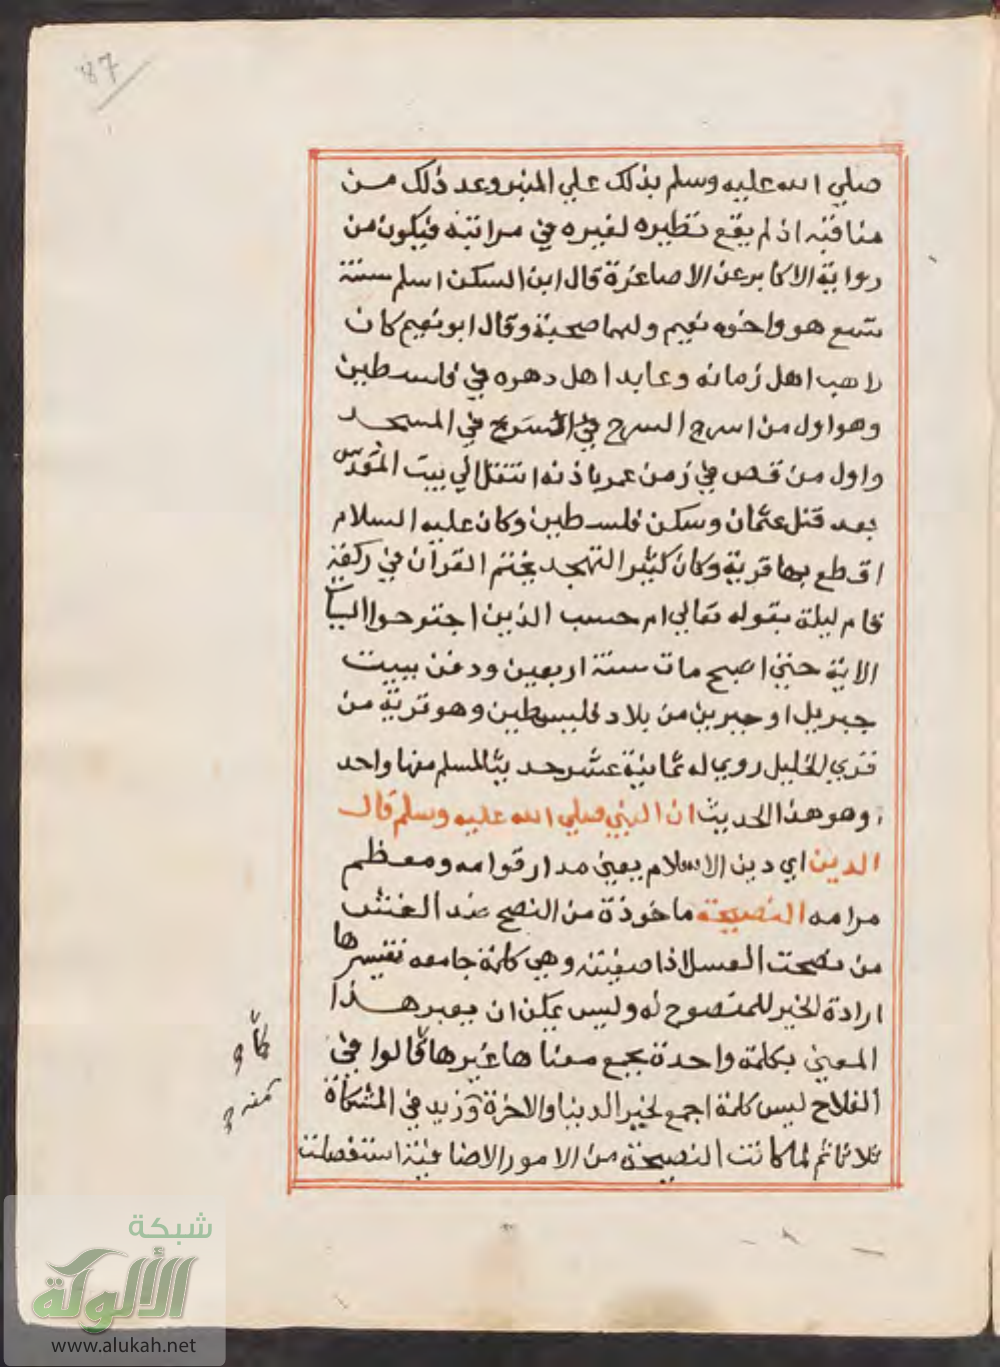 87
صلي الله عليه وسلم بذلك علي المنبر وعد ذلك من
مناقبه اذ لم يقع نظيره لغيره في مراتبه فيكون من
رواية الاكابر عن الاصاغرة قال ابن السكن اسلم سنة
تسع هو واخوه نعيم ولهما صحبة وقال ابو نعيم كان
راهب اهل زمانه وعابد اهل دهره في فلسطين
وهو اول من اسرج السرج في المسجد
واول من قص في زمن عمر باذنه انتقل الي بيت المقدس
بعد قتل عثمان وسكن فلسطين وكان عليه السلام
اقطع بها قرية وكان كثير التهجد يختم القران في ركعة
قام ليلة بقوله تعالي ام حسب الذين اجترحوا السيات
الاية حتي اصبح مات سنة اربعين ودفن ببيت
جبريل او جبرين من بلاد فليسطين وهو قرية من
قري الخليل روي له ثمانية عشر حديثا لمسلم منها واحد
وهو هذا الحديث ان النبي صلي الله عليه وسلم قال
الدين اي دين الاسلام يعني مدار قوامه ومعظم
مرامه النصيحة ماخوذة من النصح ضد الغش
من نصحت العسل اذا صفيته وهي كلمة جامعه تفسيرها
ارادة الخير للمنصوح له وليس يمكن ان يعبر هذا
المعني بكلمة واحدة يجمع معناها غيرها قالوا في
الفلاح ليس كلمة اجمع لخير الدنيا والاخرة وزيد في المشكاة
ثلاثا ثم لما كانت النصيحة من الامور الاضافية استفصلت
كما
منه
شبكة
الألوكة
www.alukah.net